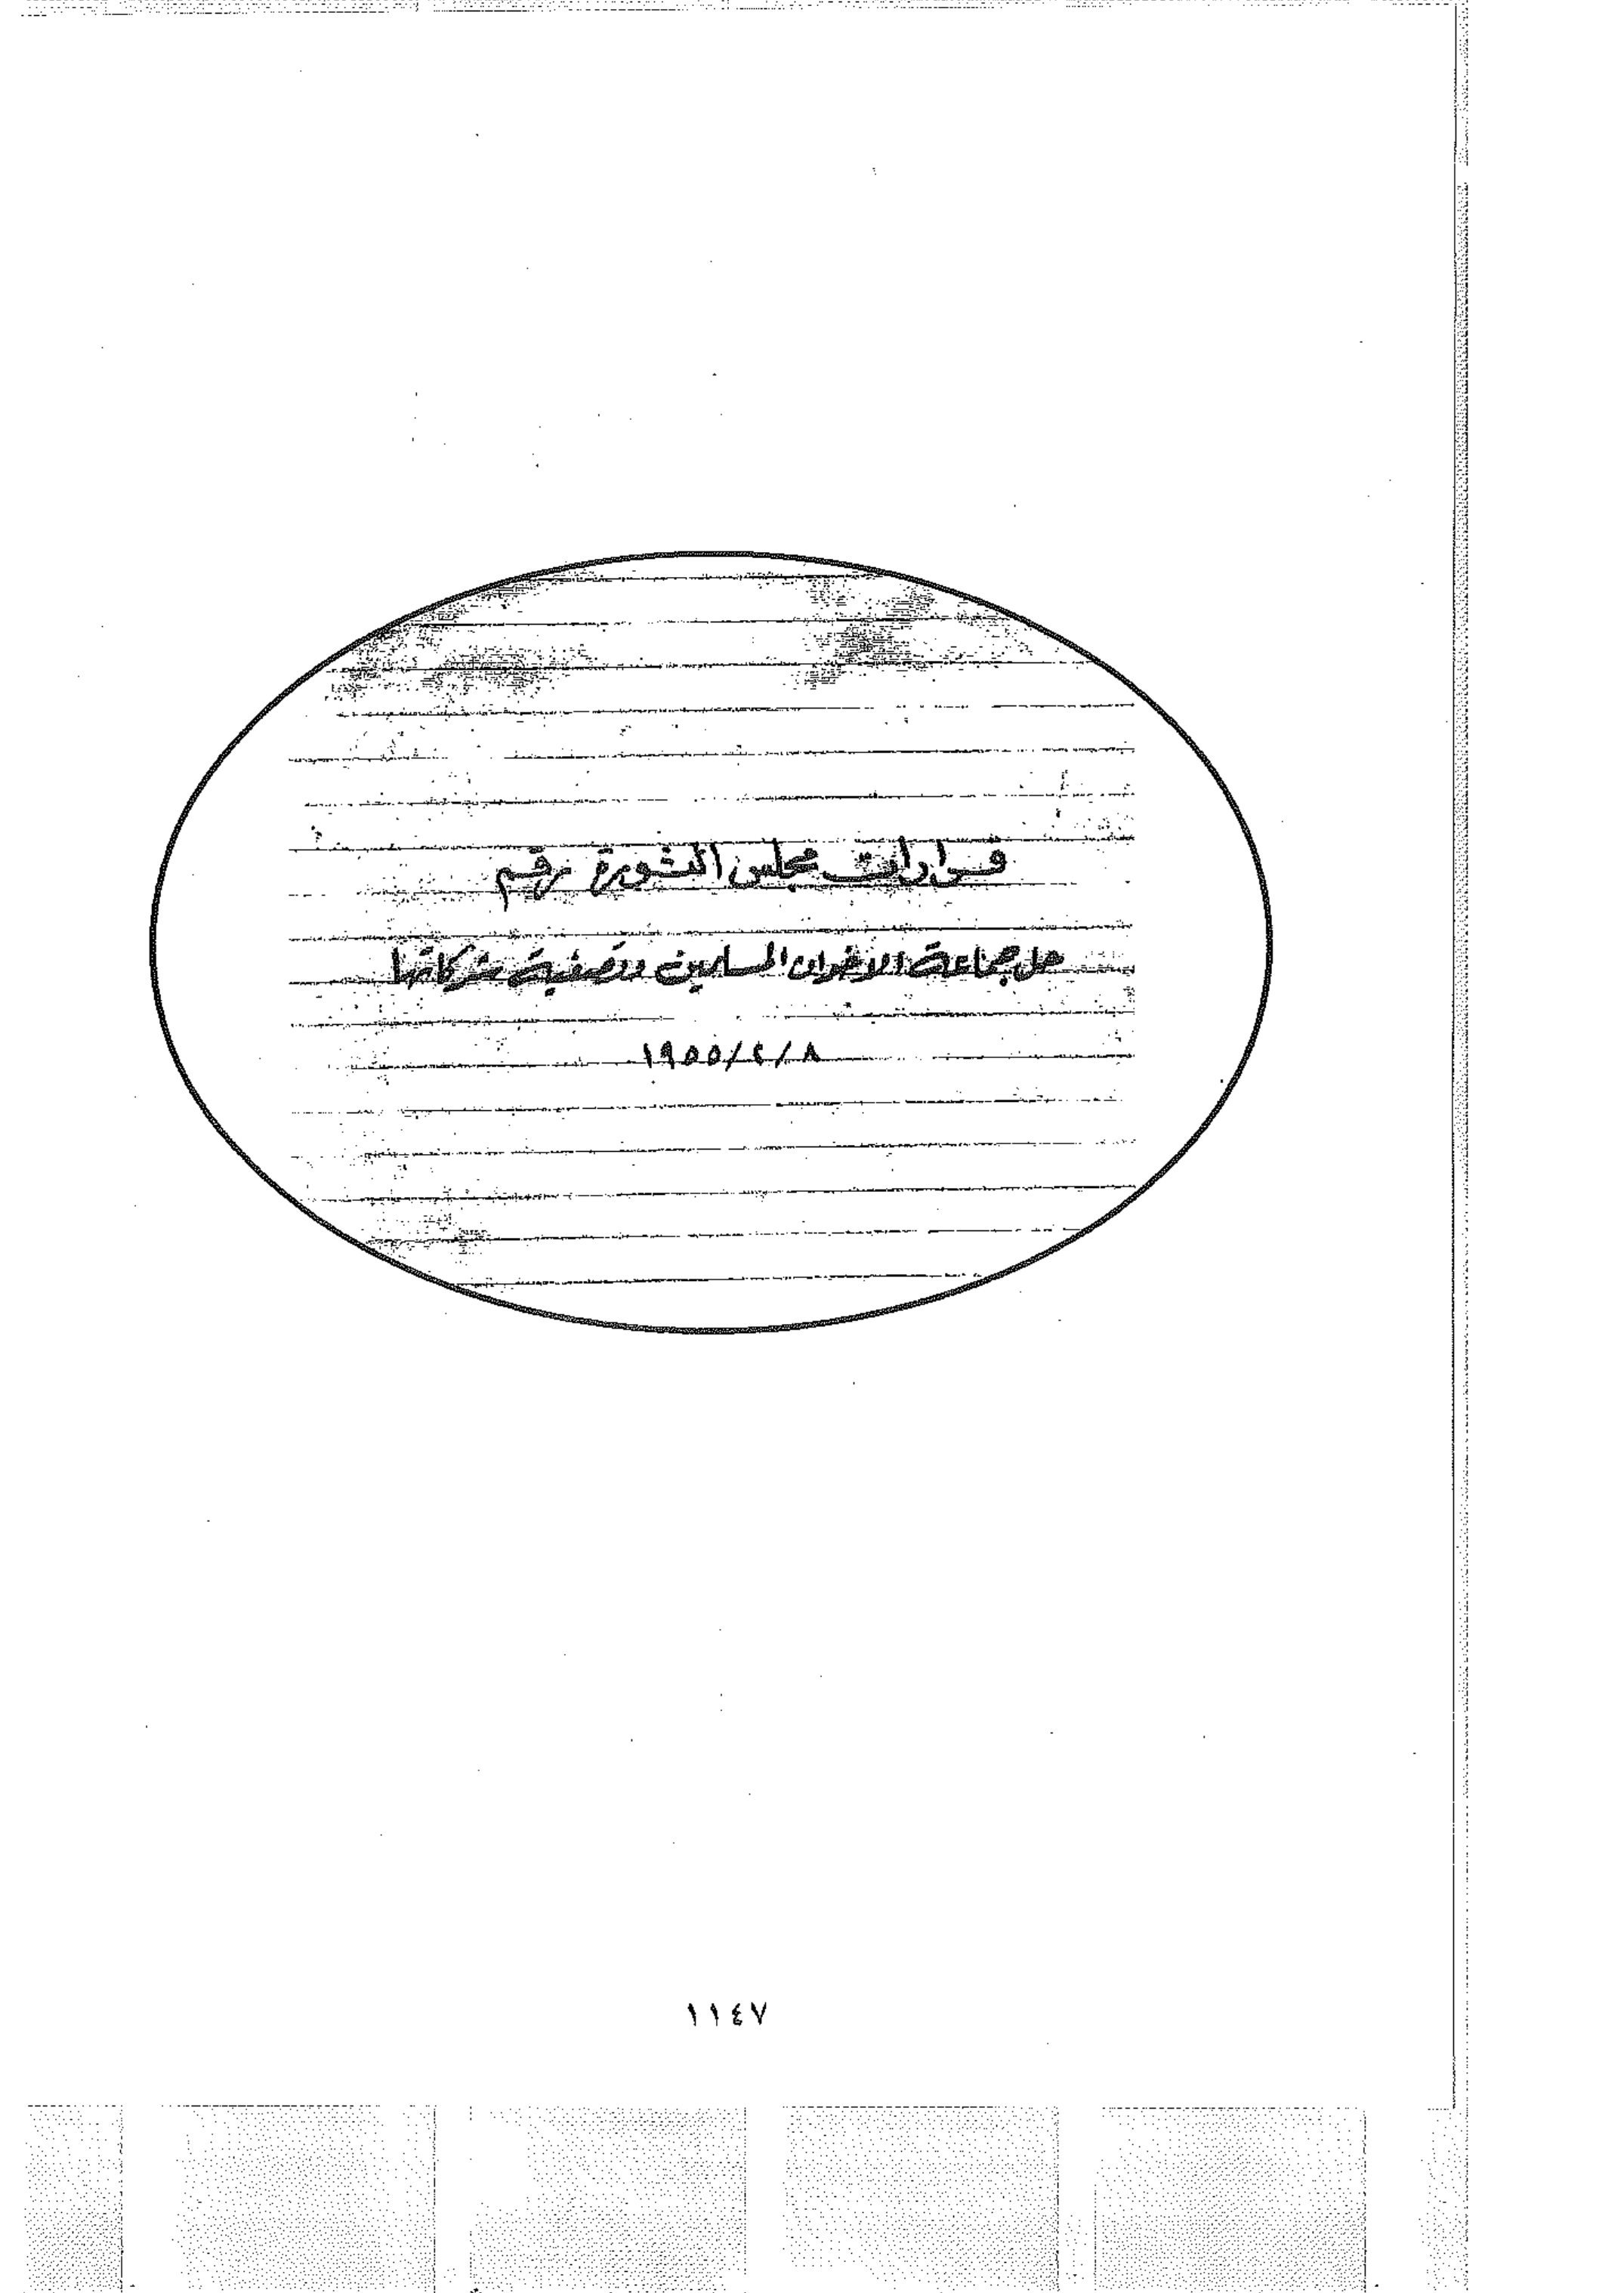 قرارات مجلس الثورة رقم
حل جماعة الاخوان المسلمين وتصفية شركاتها
١٩٥٥/٤/٨
١١٤٧